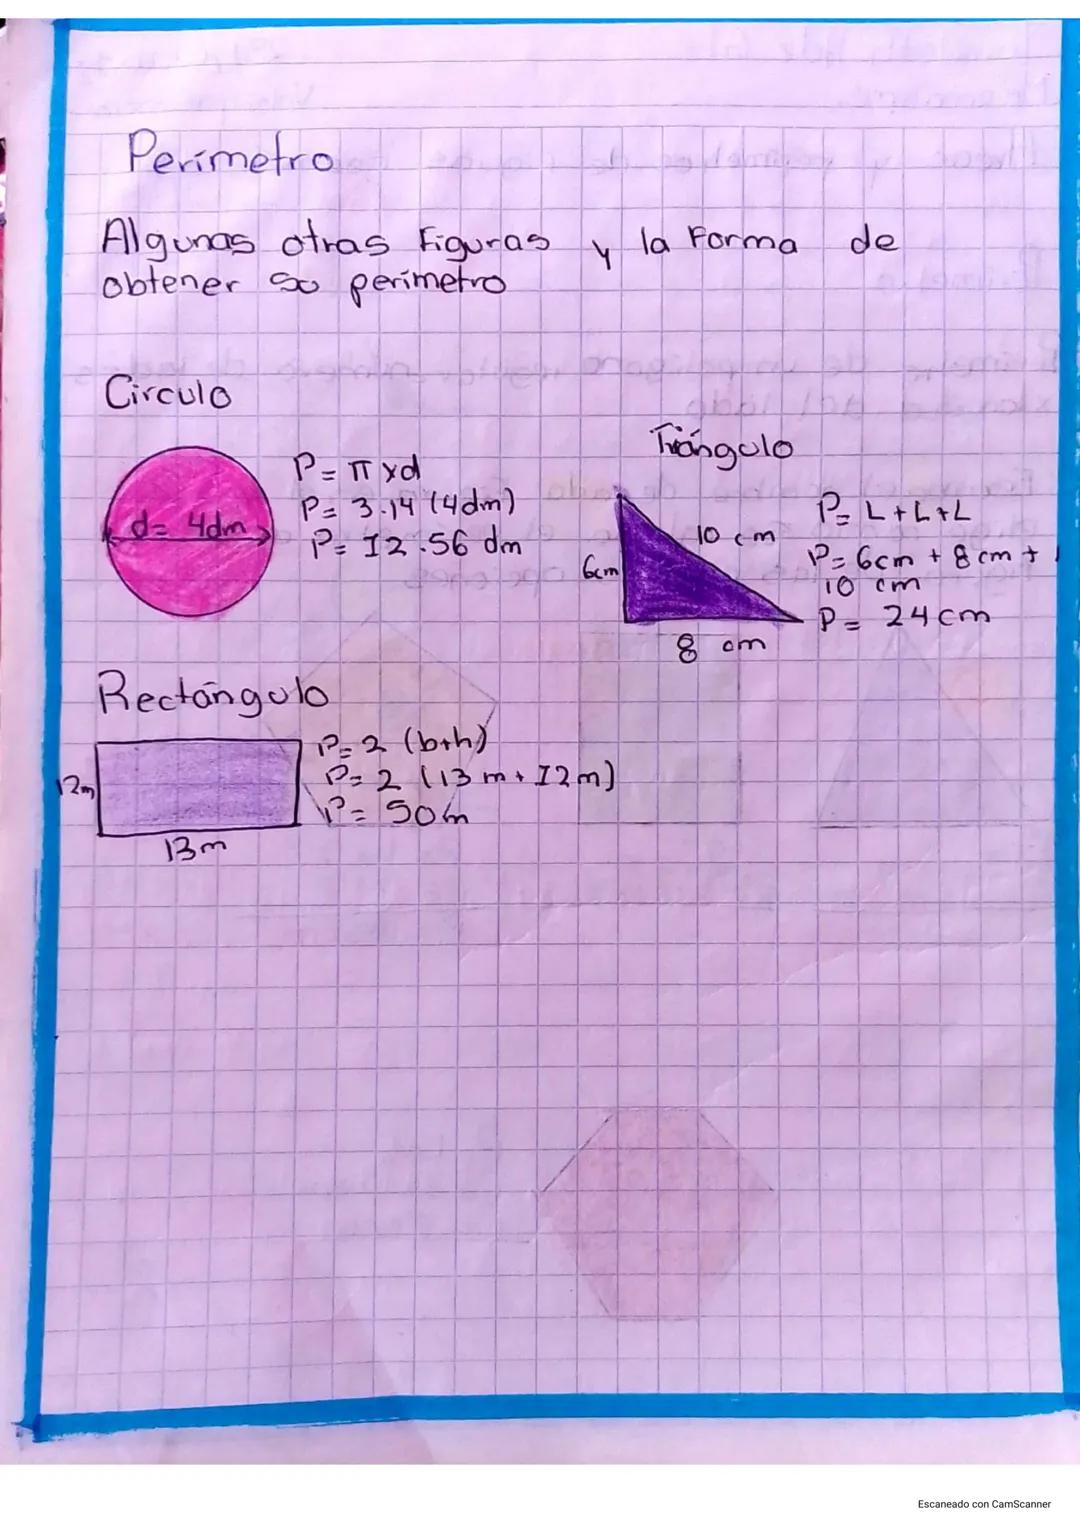 Perímetro
Algunas otras Figuras y la Forma de
obtener su perímetro
Circulo
d= 4dm
P= π xd
P= 3.14 (4dm)
P= 12.56 dm
Triángulo
10 cm
6cm
8 cm
P= L+L+L
P= 6cm + 8cm +
10 cm
P= 24cm
Rectángulo
12m
13m
P=2 (b+h)
P= 2 (13m+12m)
P= 50m
Escaneado con CamScanner